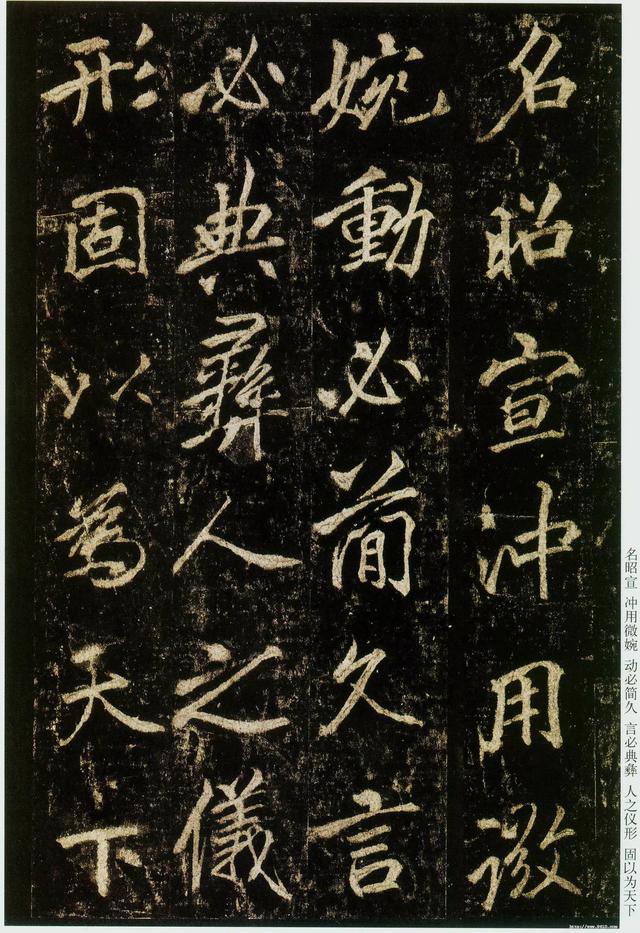 名昭宣沖用微
婉動必簡久言
必典彝人之儀
形固以為天下
名昭宣 冲用微婉 动必简久 言必典彝 人之仪形 固以为天下
http://www.9610.com